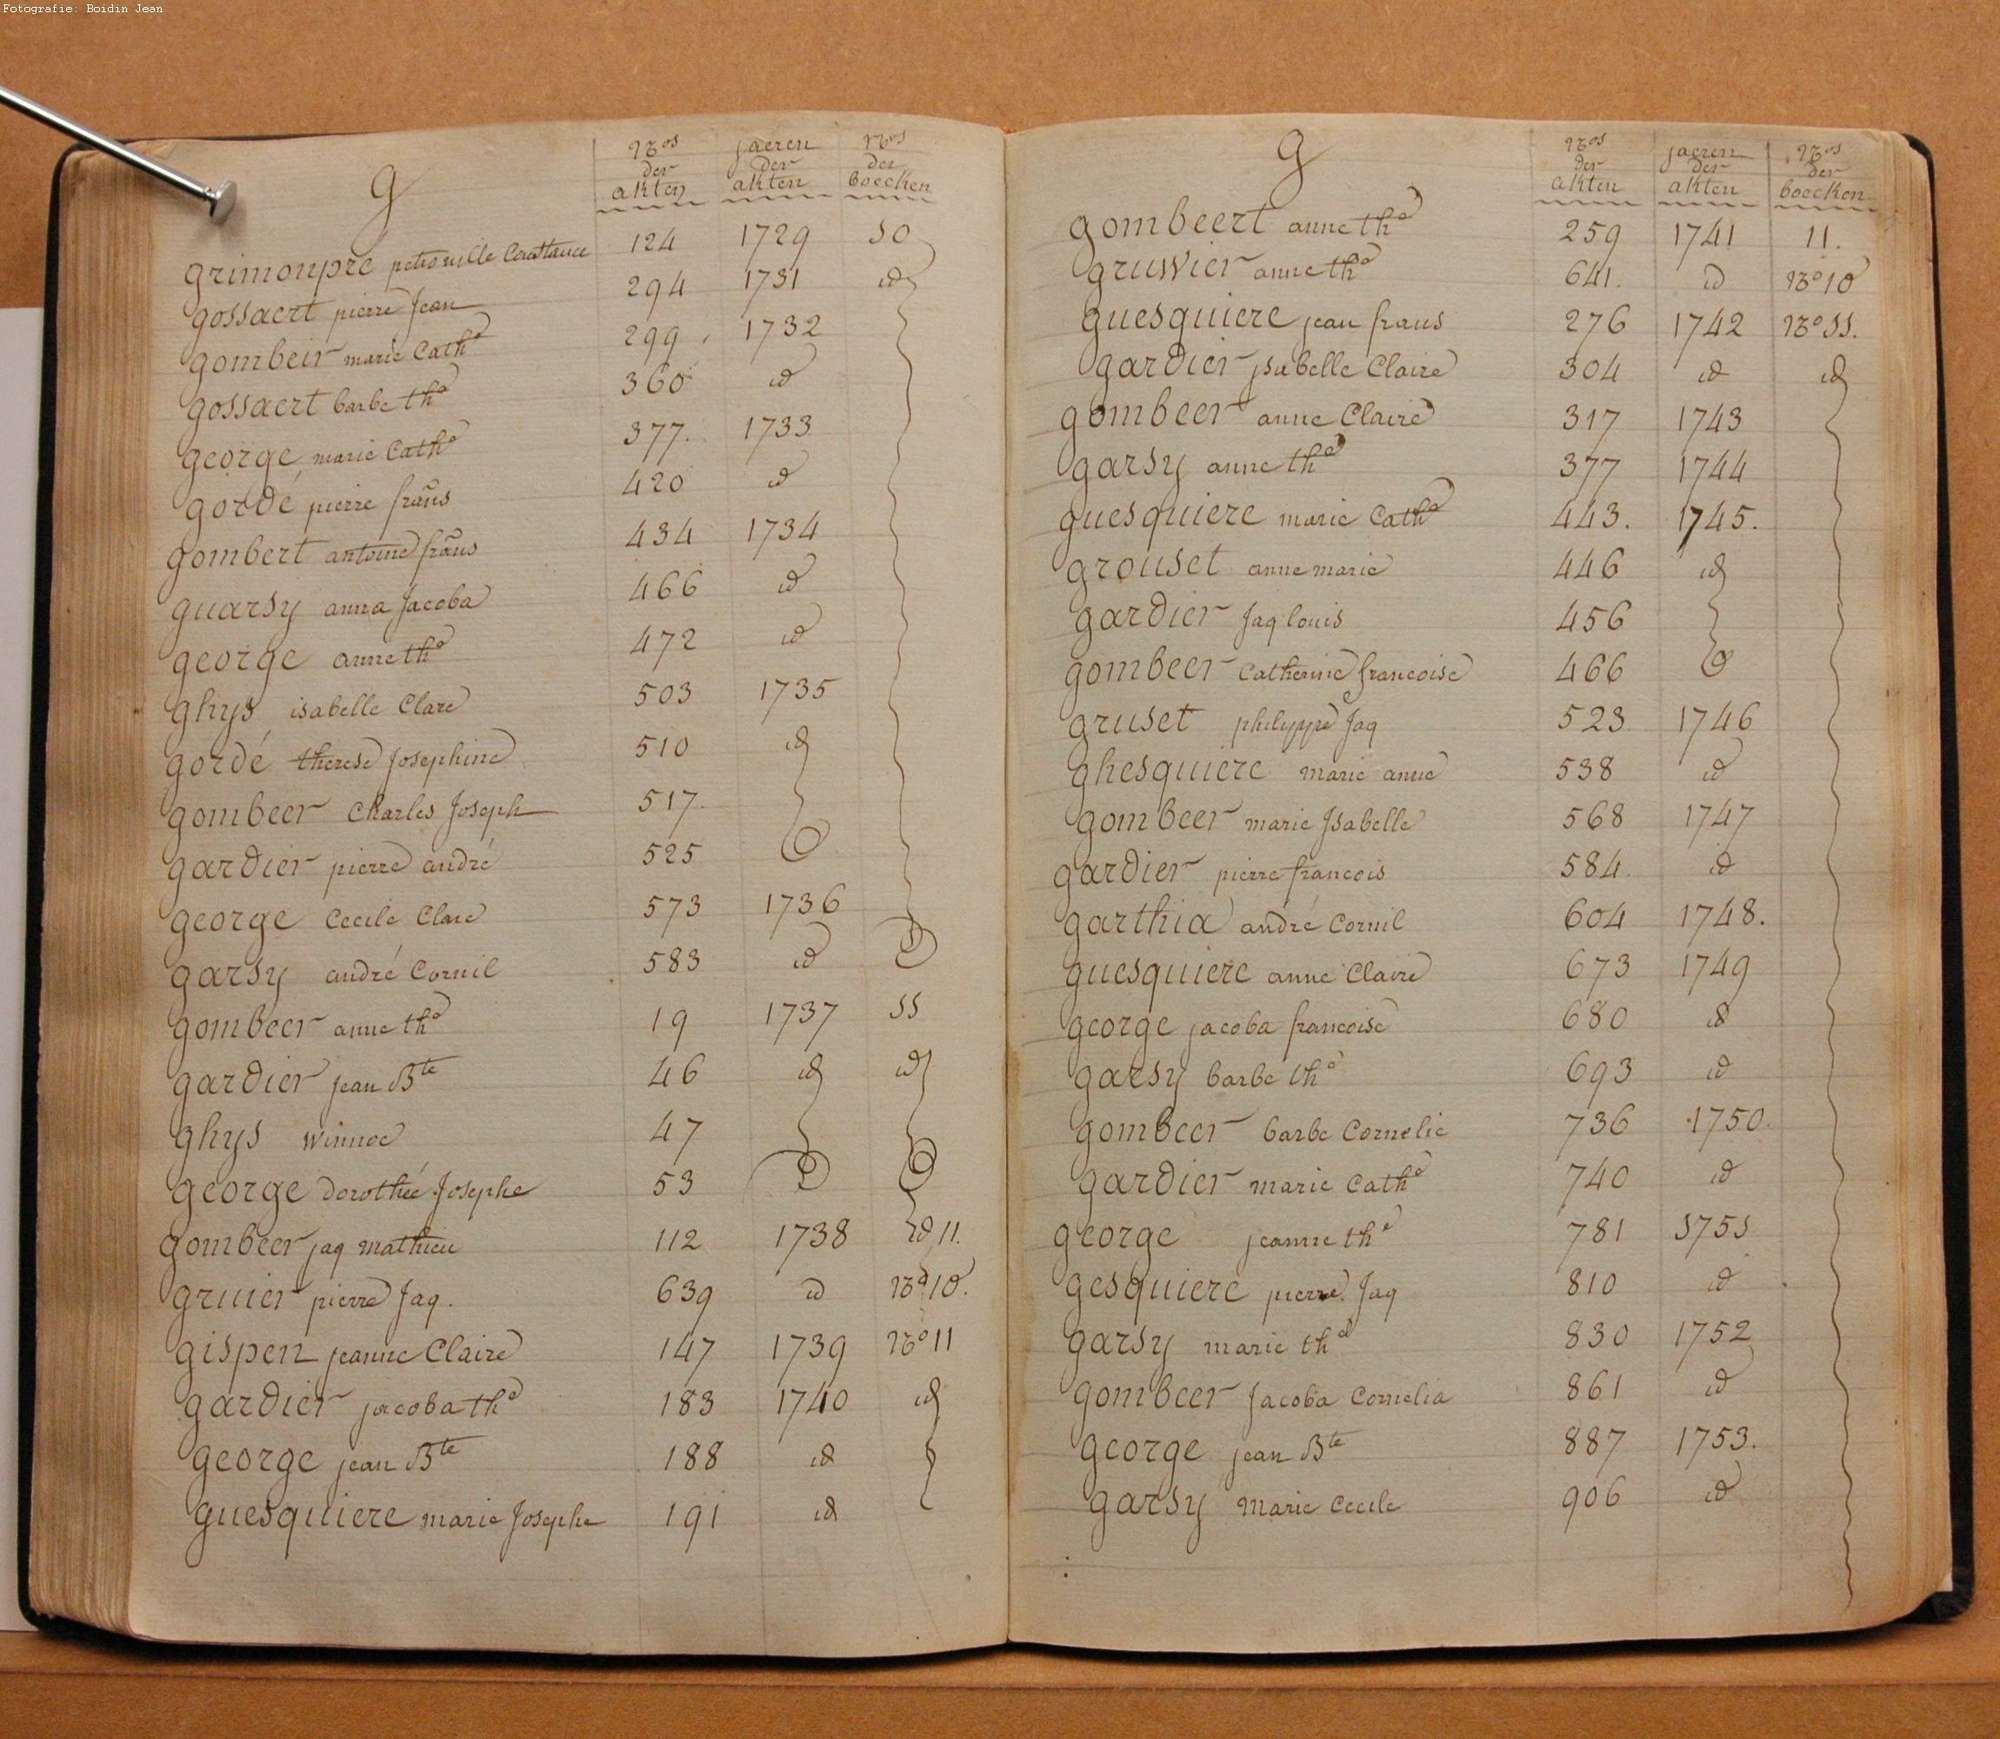 Fotografie: Boidin Jean
g
Nos der akten
jaeren der akten
Nos der boecken
grimonpre petronille Constance 124 1729 10
gossaert pierre Jean 294 1731 id
gombeir marie Cathe 299 1732
gossaert barbe the 360 id
george marie Cathe 377. 1733
gordé pierre frans 420 id
gombert antoine frans 434 1734
guarsy anna Jacoba 466 id
george anne the 472 id
ghys isabelle Clare 503 1735
gordé therese Josephine 510 id
gombeer Charles Joseph 517.
gardier pierre andré 525
george Cecile Clare 573 1736
garsy andré Cornil 583 id
gombeer anne the 19 1737 11
gardier jean Bte 46 id id
ghys winnoc 47
george dorothée Josephe 53
gombeer jaq mathieu 112 1738 id 11.
gruier pierre Jaq. 639 id No 10.
gispen jeanne Claire 147 1739 No 11
gardier jacoba the 183 1740 id
george jean Bte 188 id
guesquiere marie Josephe 191 id
g
Nos der akten
jaeren der akten
Nos der boecken
gombeert anne the 259 1741 11.
gruwier anne the 641. id No 10
guesquiere jean frans 276 1742 No 11.
gardier jsabelle Claire 304 id id
gombeer anne Claire 317 1743
garsy anne the 377 1744
guesquiere marie Cathe 443. 1745.
grouset anne marie 446 id
gardier Jaq louis 456
gombeer Catherine francoise 466
gruset philyppe Jaq 523 1746
ghesquiere marie anne 538 id
gombeer marie Jsabelle 568 1747
gardier pierre francois 584. id
garthia andré Cornil 604 1748.
guesquiere anne Claire 673 1749
george jacoba francoise 680 id
garsy barbe the 693 id
gombeer barbe Cornelie 736 1750.
gardier marie Cathe 740 id
george jeanne the 781 1751
gesquiere pierre Jaq 810 id
garsy marie the 830 1752
gombeer Jacoba Cornelia 861 id
george jean Bte 887 1753.
garsy Marie Cecile 906 id